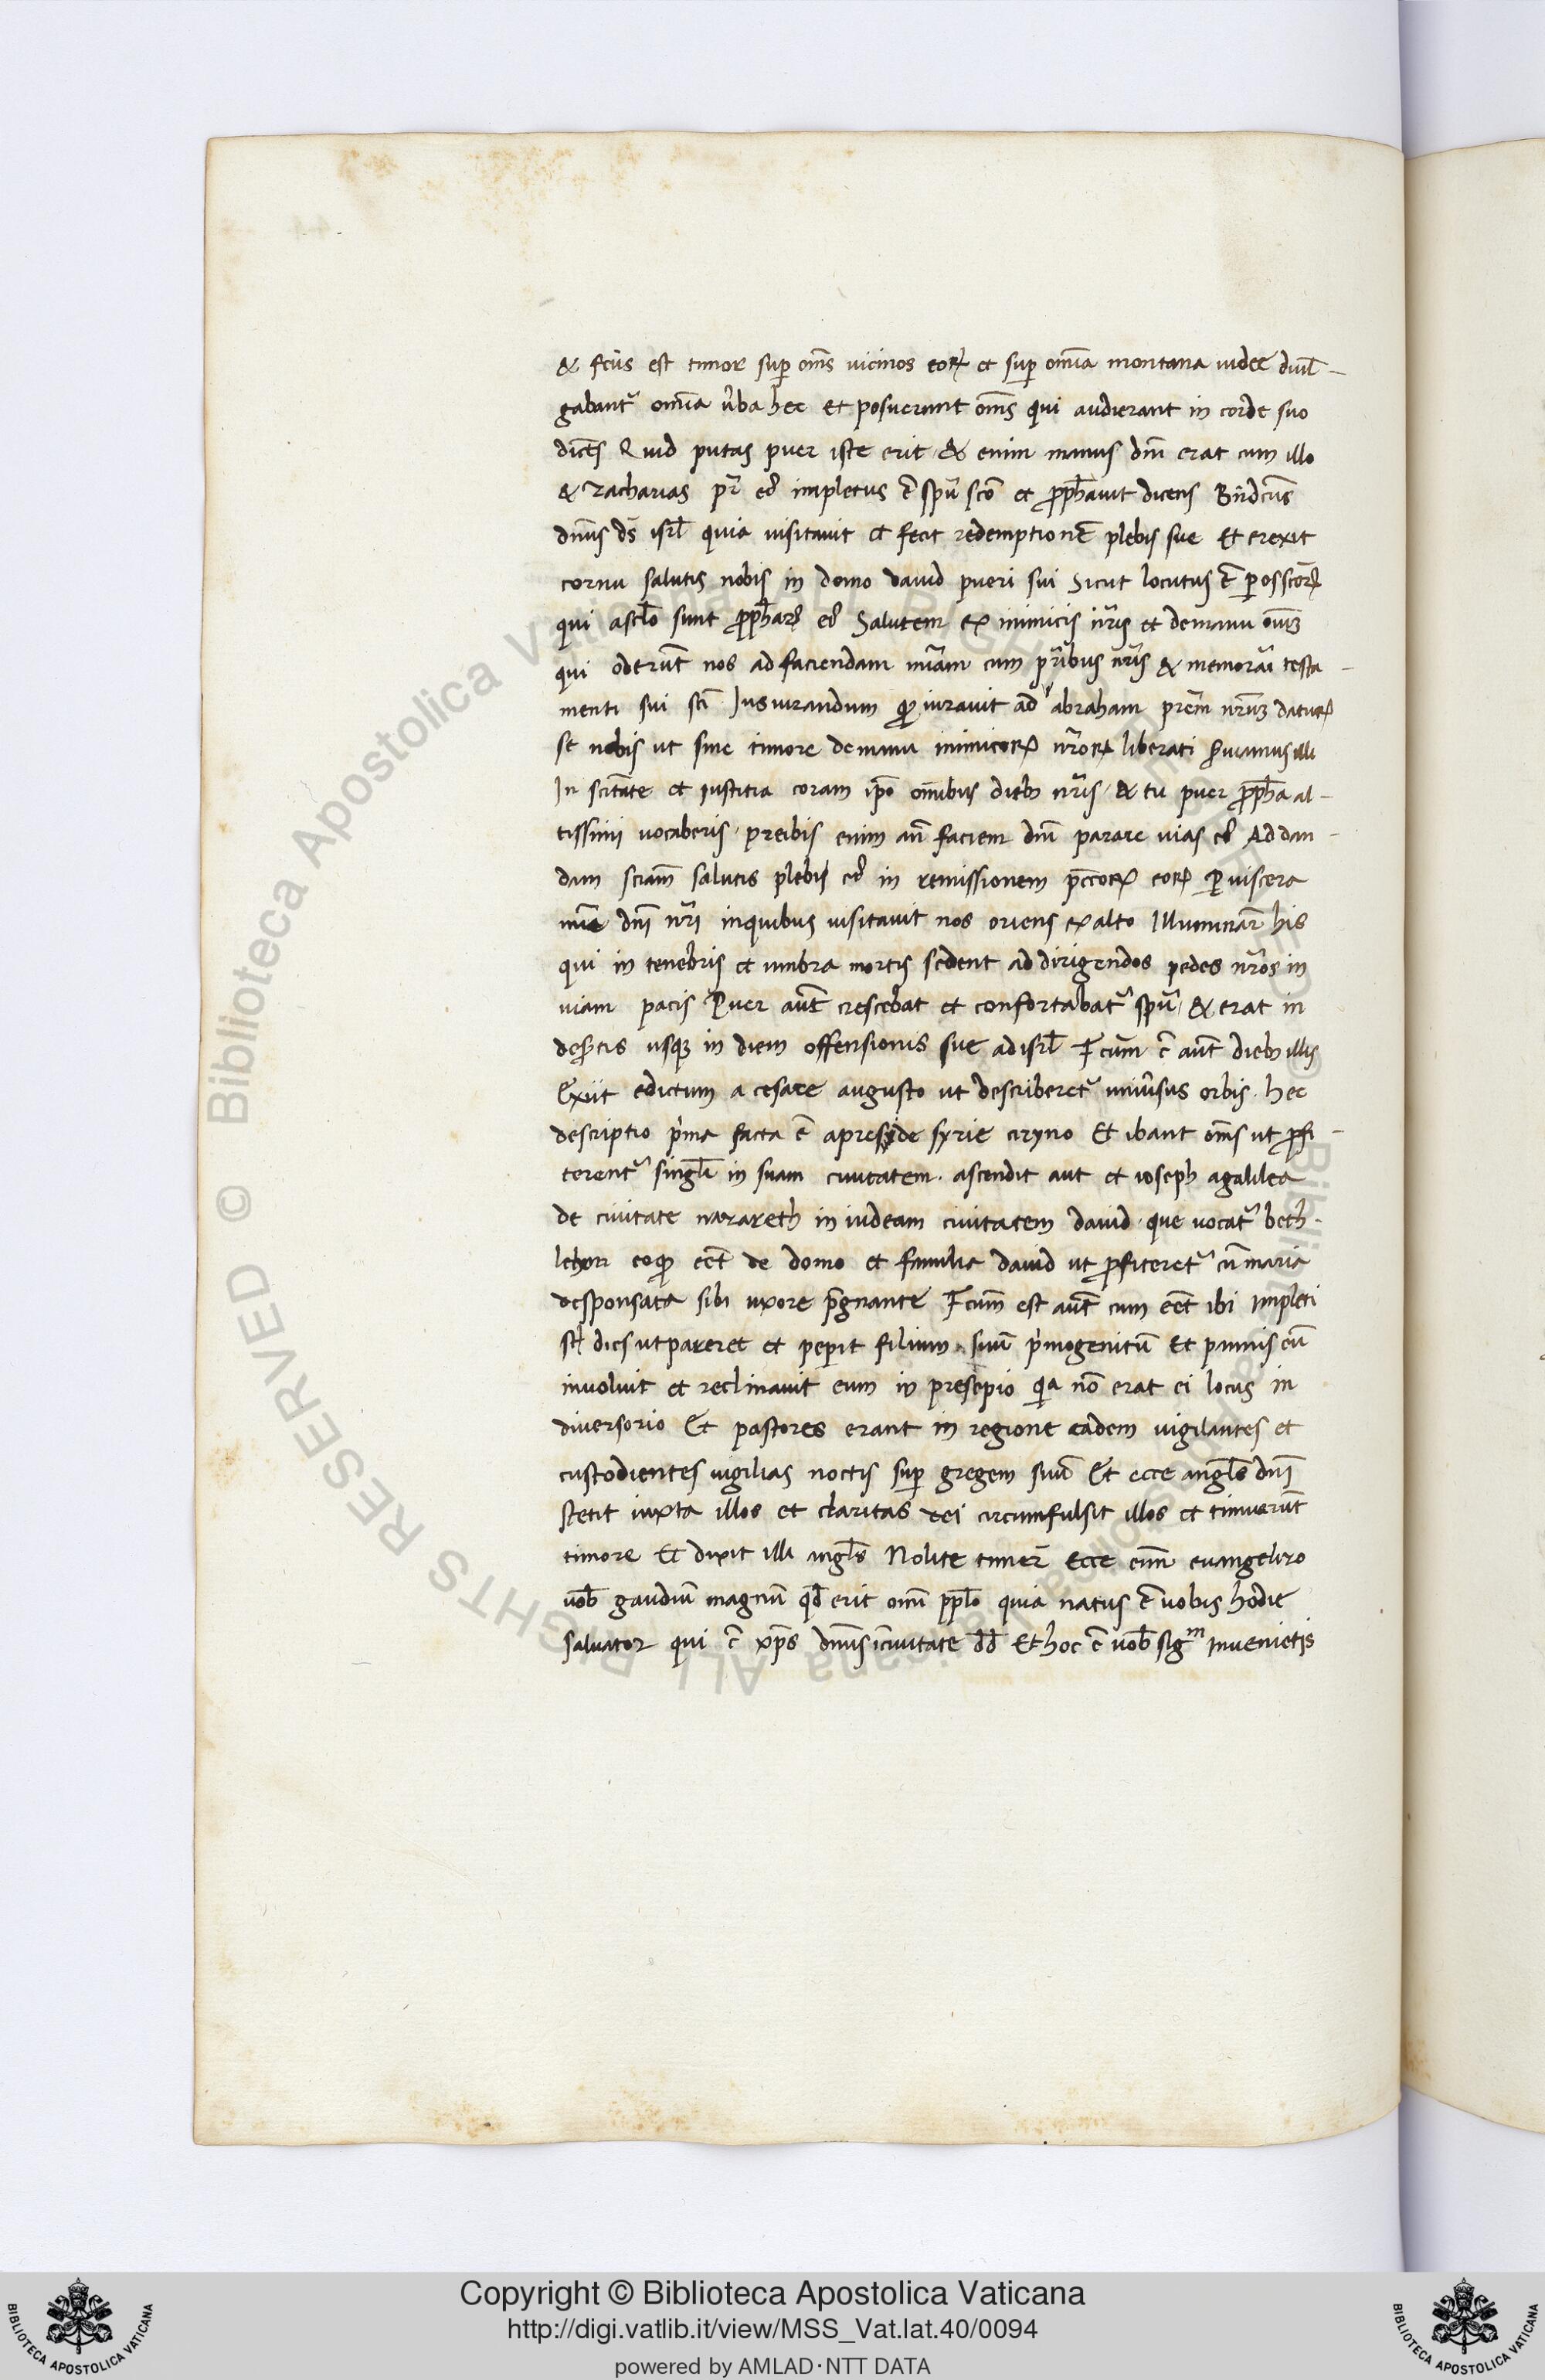 & fcūs est timor sup om̄s uicinos eoꝝ et sup omīa montana iudee diuul-
gabant᷑ omīa u͛ba hec et posuerunt om̄s qui audierant in corde suo
dicēs Quid putas puer iste erit · & enim manus dn̄i erat cum illo
& Zacharias pr̄ eꝰ impletus ē spū scō et ꝓph̄auit dicens Bn̄dcūs
dn̄us ds̄ isrl̄ quia uisitauit et fecit redemptionē plebis sue Et erexit
cornu salutis nobis in domo dauid pueri sui Sicut locutus ē ꝑ os scōꝝ
qui a scl̄o sunt ꝓph̄aꝝ eꝰ Salutem ex inimicis nr̄is et de manu om̄iuꝫ
qui oderūt nos ad faciendam mīam cum pr̄ibus nr̄is & memorāi testa-
menti sui sc̄i Iusiurandum qđ iurauit ad abraham prēm nr̄uꝫ datuꝝ
se nobis ut sine timore de manu inimicoꝝ nr̄oꝝ liberati s͛uiamus illi
In scītate et iustitia coram ip̄o omībus dieb₉ nr̄is · & tu puer ꝓph̄a al-
tissimi uocaberis · preibis enim an̄ faciem dn̄i parare uias eꝰ Ad dan-
dam sciām salutis plebis eꝰ in remissionem pcc̄oꝝ eoꝝ Ꝑ uiscera
mīe dn̄i nr̄i in quibus uisitauit nos oriens ex alto Illuminar̄ his
qui in tenebris et umbra mortis sedent ad dirigendos pedes nr̄os in
uiam pacis Puer aūt crescebat et confortabat᷑ spū · & erat in
des͛tis usqꝫ in diem offensionis sue ad isrl̄ Fcūm ē aūt dieb₉ illis
Exiit edictum a cesare augusto ut describeret᷑ uniu͛sus orbis · hec
descriptio p͛ma facta ē a preside syrie ciryno Et ibant om̄s ut ꝓfi-
terent᷑ singl̄i in suam ciuitatem · ascendit aut et ioseph a galilea
de ciuitate nazareth in iudeam ciuitatem dauid · que uocat᷑ beth-
lehem eo qđ eēt de domo et familia dauid ut ꝓfiteret᷑ cū maria
desponsata sibi uxore p̄gnante Fcūm est aūt cum eēt ibi Impleti
st̄ dies ut pareret et pepit filium suū p͛mogenitū Et pannis eū
inuoluit et reclinauit eum in presepio qa nō erat ei locus in
diuersorio Et pastores erant in regione eadem uigilantes et
custodientes uigilias noctis sup gregem suū Et ecce angl̄s dn̄i
stetit iuxta illos et claritas dei circumfulsit illos et timuerūt
timore Et dixit illi angl̄s Nolite timer̄ Ecce enī euangelizo
uob̄ gaudiū magnū qđ erit omī ppl̄o quia natus ē uobis hodie
saluator qui ē xp̄s dn̄us ī ciuitate dd̄ Et hoc ē uob̄ sigm Inuenietis
Copyright © Biblioteca Apostolica Vaticana
http://digi.vatlib.it/view/MSS_Vat.lat.40/0094
powered by AMLAD·NTT DATA
BIBLIOTECA APOSTOLICA VATICANA
BIBLIOTECA APOSTOLICA VATICANA
© Biblioteca Apostolica Vaticana ALL RIGHTS RESERVED